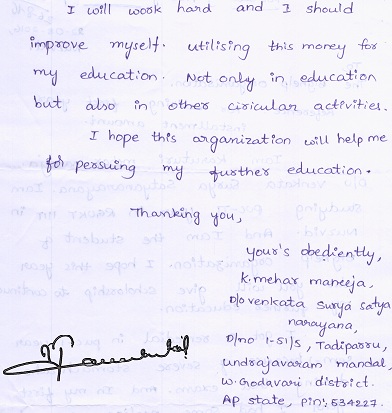 I will work hard and I should
improve myself. utilising this money for
my education. Not only in education
but also in other ciricular activities.
I hope this organization will help me
for persuing my further education.
Thanking you,
your's obediently,
K. mehar maneeja,
D/o venkata surya satya
narayana,
D/no 1-51/5, Tadiparru,
undrajavaram mandal,
w. Godavari district.
AP state, pin: 534227.